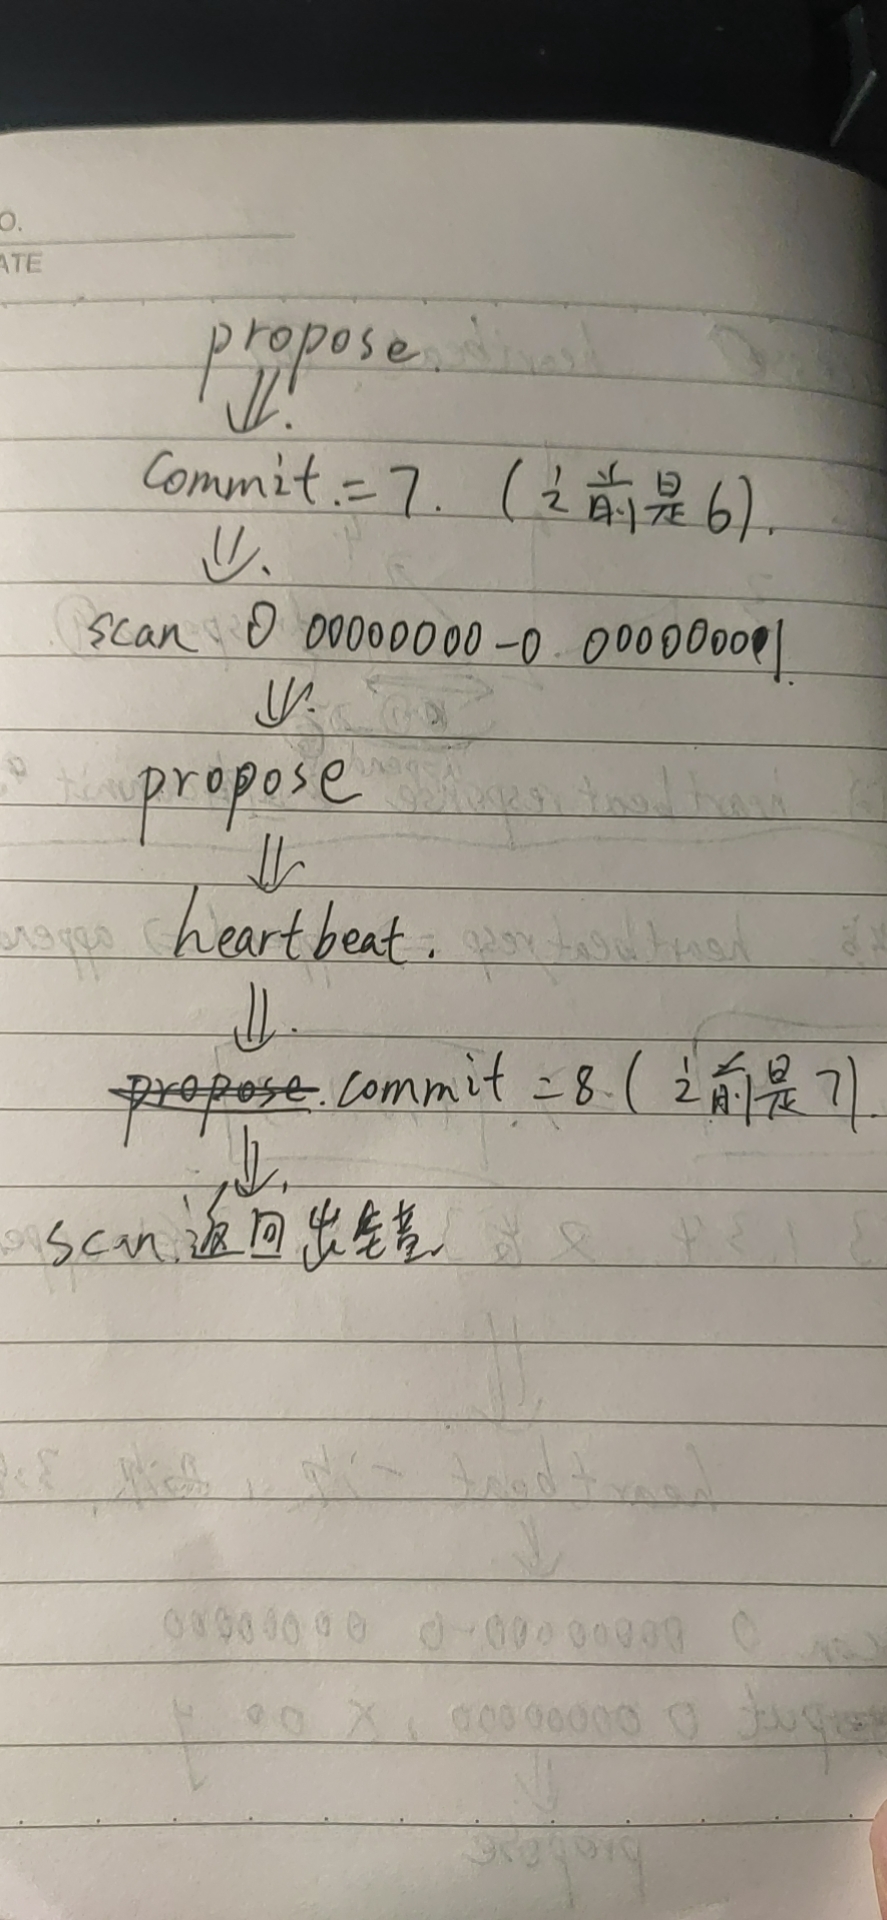 O.
ATE
propose.
⇓.
commit.=7. (之前是6).
⇓.
scan 0 00000000-0 00000001.
⇓.
propose
⇓
heartbeat.
⇓.
propose. commit =8.(之前是7).
⇓.
scan 返回出